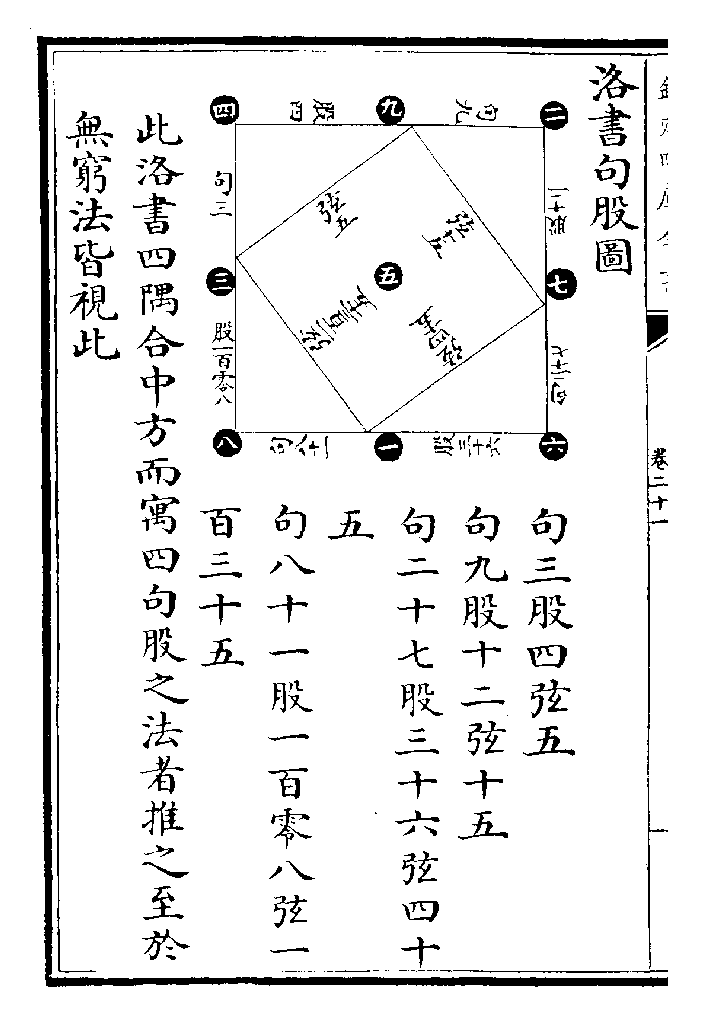 卷二十一
洛書句股圖
二
九
四
句九
股四
句三
股十二
弦五
弦十五
五
七
三
句二十七
股一百零八
六
一
八
股三十六
句八十一
句三股四弦五
句九股十二弦十五
句二十七股三十六弦四十
五
句八十一股一百零八弦一
百三十五
此洛書四隅合中方而寓四句股之法者推之至於
無窮法皆視此